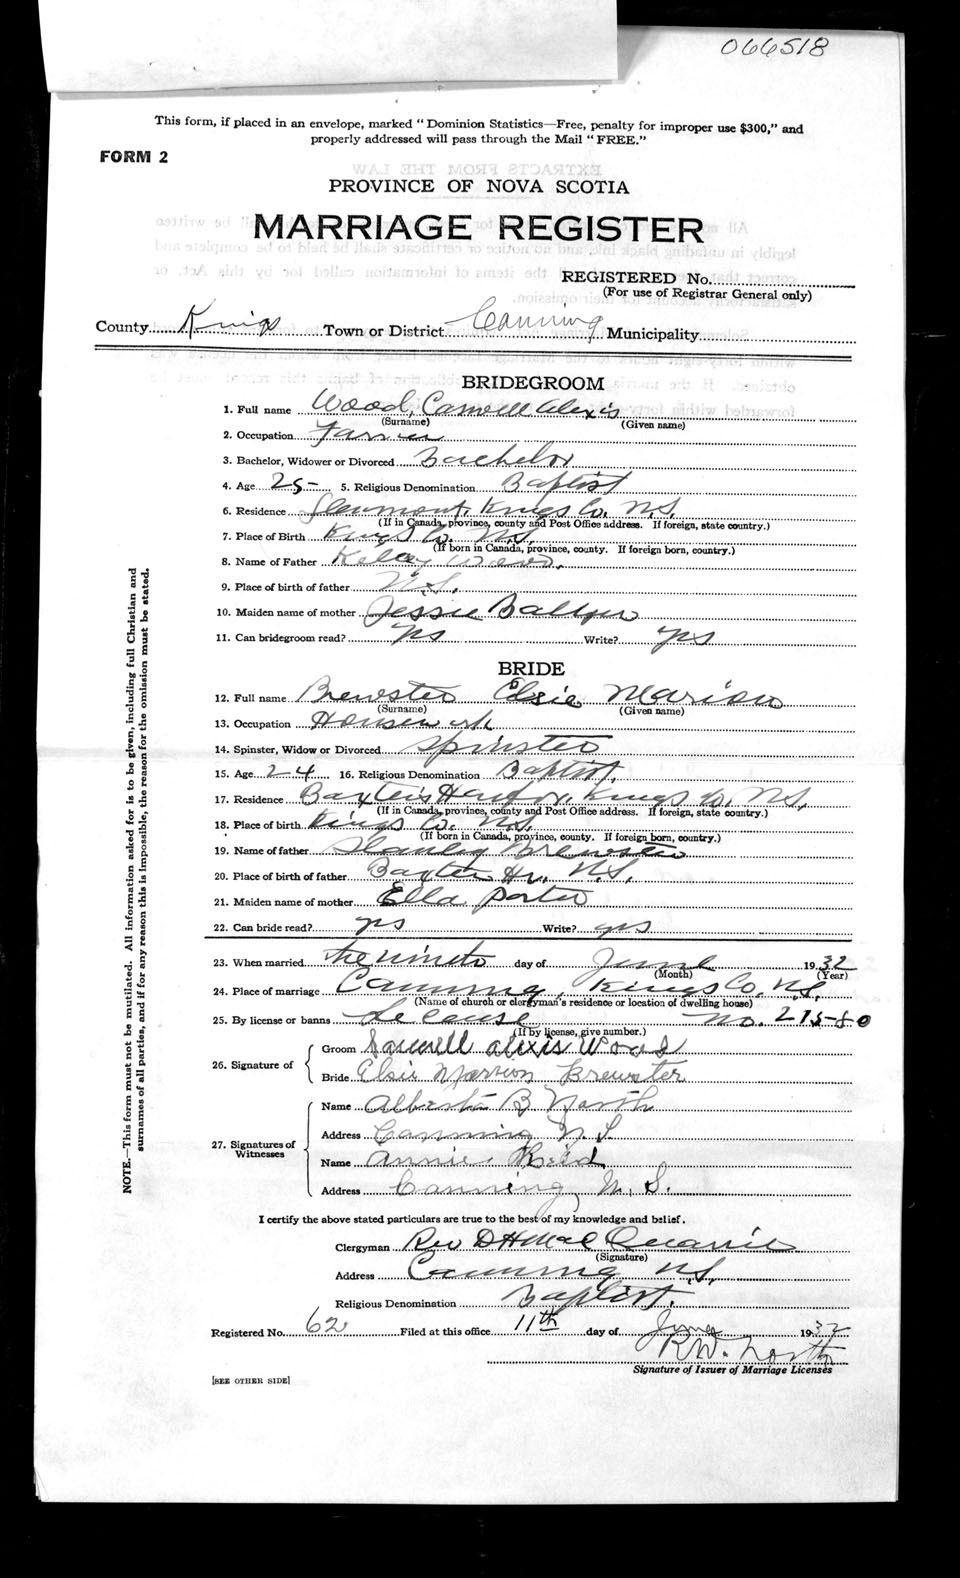 066518
This form, if placed in an envelope, marked "Dominion Statistics—Free, penalty for improper use $300," and
properly addressed will pass through the Mail "FREE."
FORM 2
PROVINCE OF NOVA SCOTIA
MARRIAGE REGISTER
REGISTERED No.
(For use of Registrar General only)
County Kings Town or District Canning Municipality
BRIDEGROOM
1. Full name Wood, Alexis
(Surname) (Given name)
2. Occupation Farmer
3. Bachelor, Widower or Divorced Bachelor
4. Age 25- 5. Religious Denomination Baptist
6. Residence Kings Co. N.S.
(If in Canada, province, county and Post Office address. If foreign, state country.)
7. Place of Birth Kings Co. N.S.
(If born in Canada, province, county. If foreign born, country.)
8. Name of Father
9. Place of birth of father N.S.
10. Maiden name of mother Jessie
11. Can bridegroom read? yes Write? yes
BRIDE
12. Full name Brewster Elsie Marion
(Surname) (Given name)
13. Occupation Housework
14. Spinster, Widow or Divorced Spinster
15. Age 24 16. Religious Denomination Baptist.
17. Residence Baxter's Harbor, Kings Co. N.S.
(If in Canada, province, county and Post Office address. If foreign, state country.)
18. Place of birth Kings Co. N.S.
(If born in Canada, province, county. If foreign born, country.)
19. Name of father Stanley Brewster
20. Place of birth of father Baxter Hr. N.S.
21. Maiden name of mother Ella Porter
22. Can bride read? yes Write? yes
23. When married the ninth day of June 1932
(Month) (Year)
24. Place of marriage Canning, Kings Co, N.S.
(Name of church or clergyman's residence or location of dwelling house)
25. By license or banns No. 215-80
(If by license, give number.)
26. Signature of
Groom Alexis Wood
Bride Elsie Marion Brewster
27. Signatures of
Witnesses
Name Alberta B North
Address Canning N.S.
Name Annie Reid
Address Canning, N.S.
I certify the above stated particulars are true to the best of my knowledge and belief.
Clergyman Rev D H Mac Quarrie
(Signature)
Address Canning N.S.
Religious Denomination Baptist.
Registered No. 62 Filed at this office 11th day of June 1932
R.W. North
Signature of Issuer of Marriage Licenses
[SEE OTHER SIDE]
NOTE.—This form must not be mutilated. All information asked for is to be given, including full Christian and
surnames of all parties, and if for any reason this is impossible, the reason for the omission must be stated.